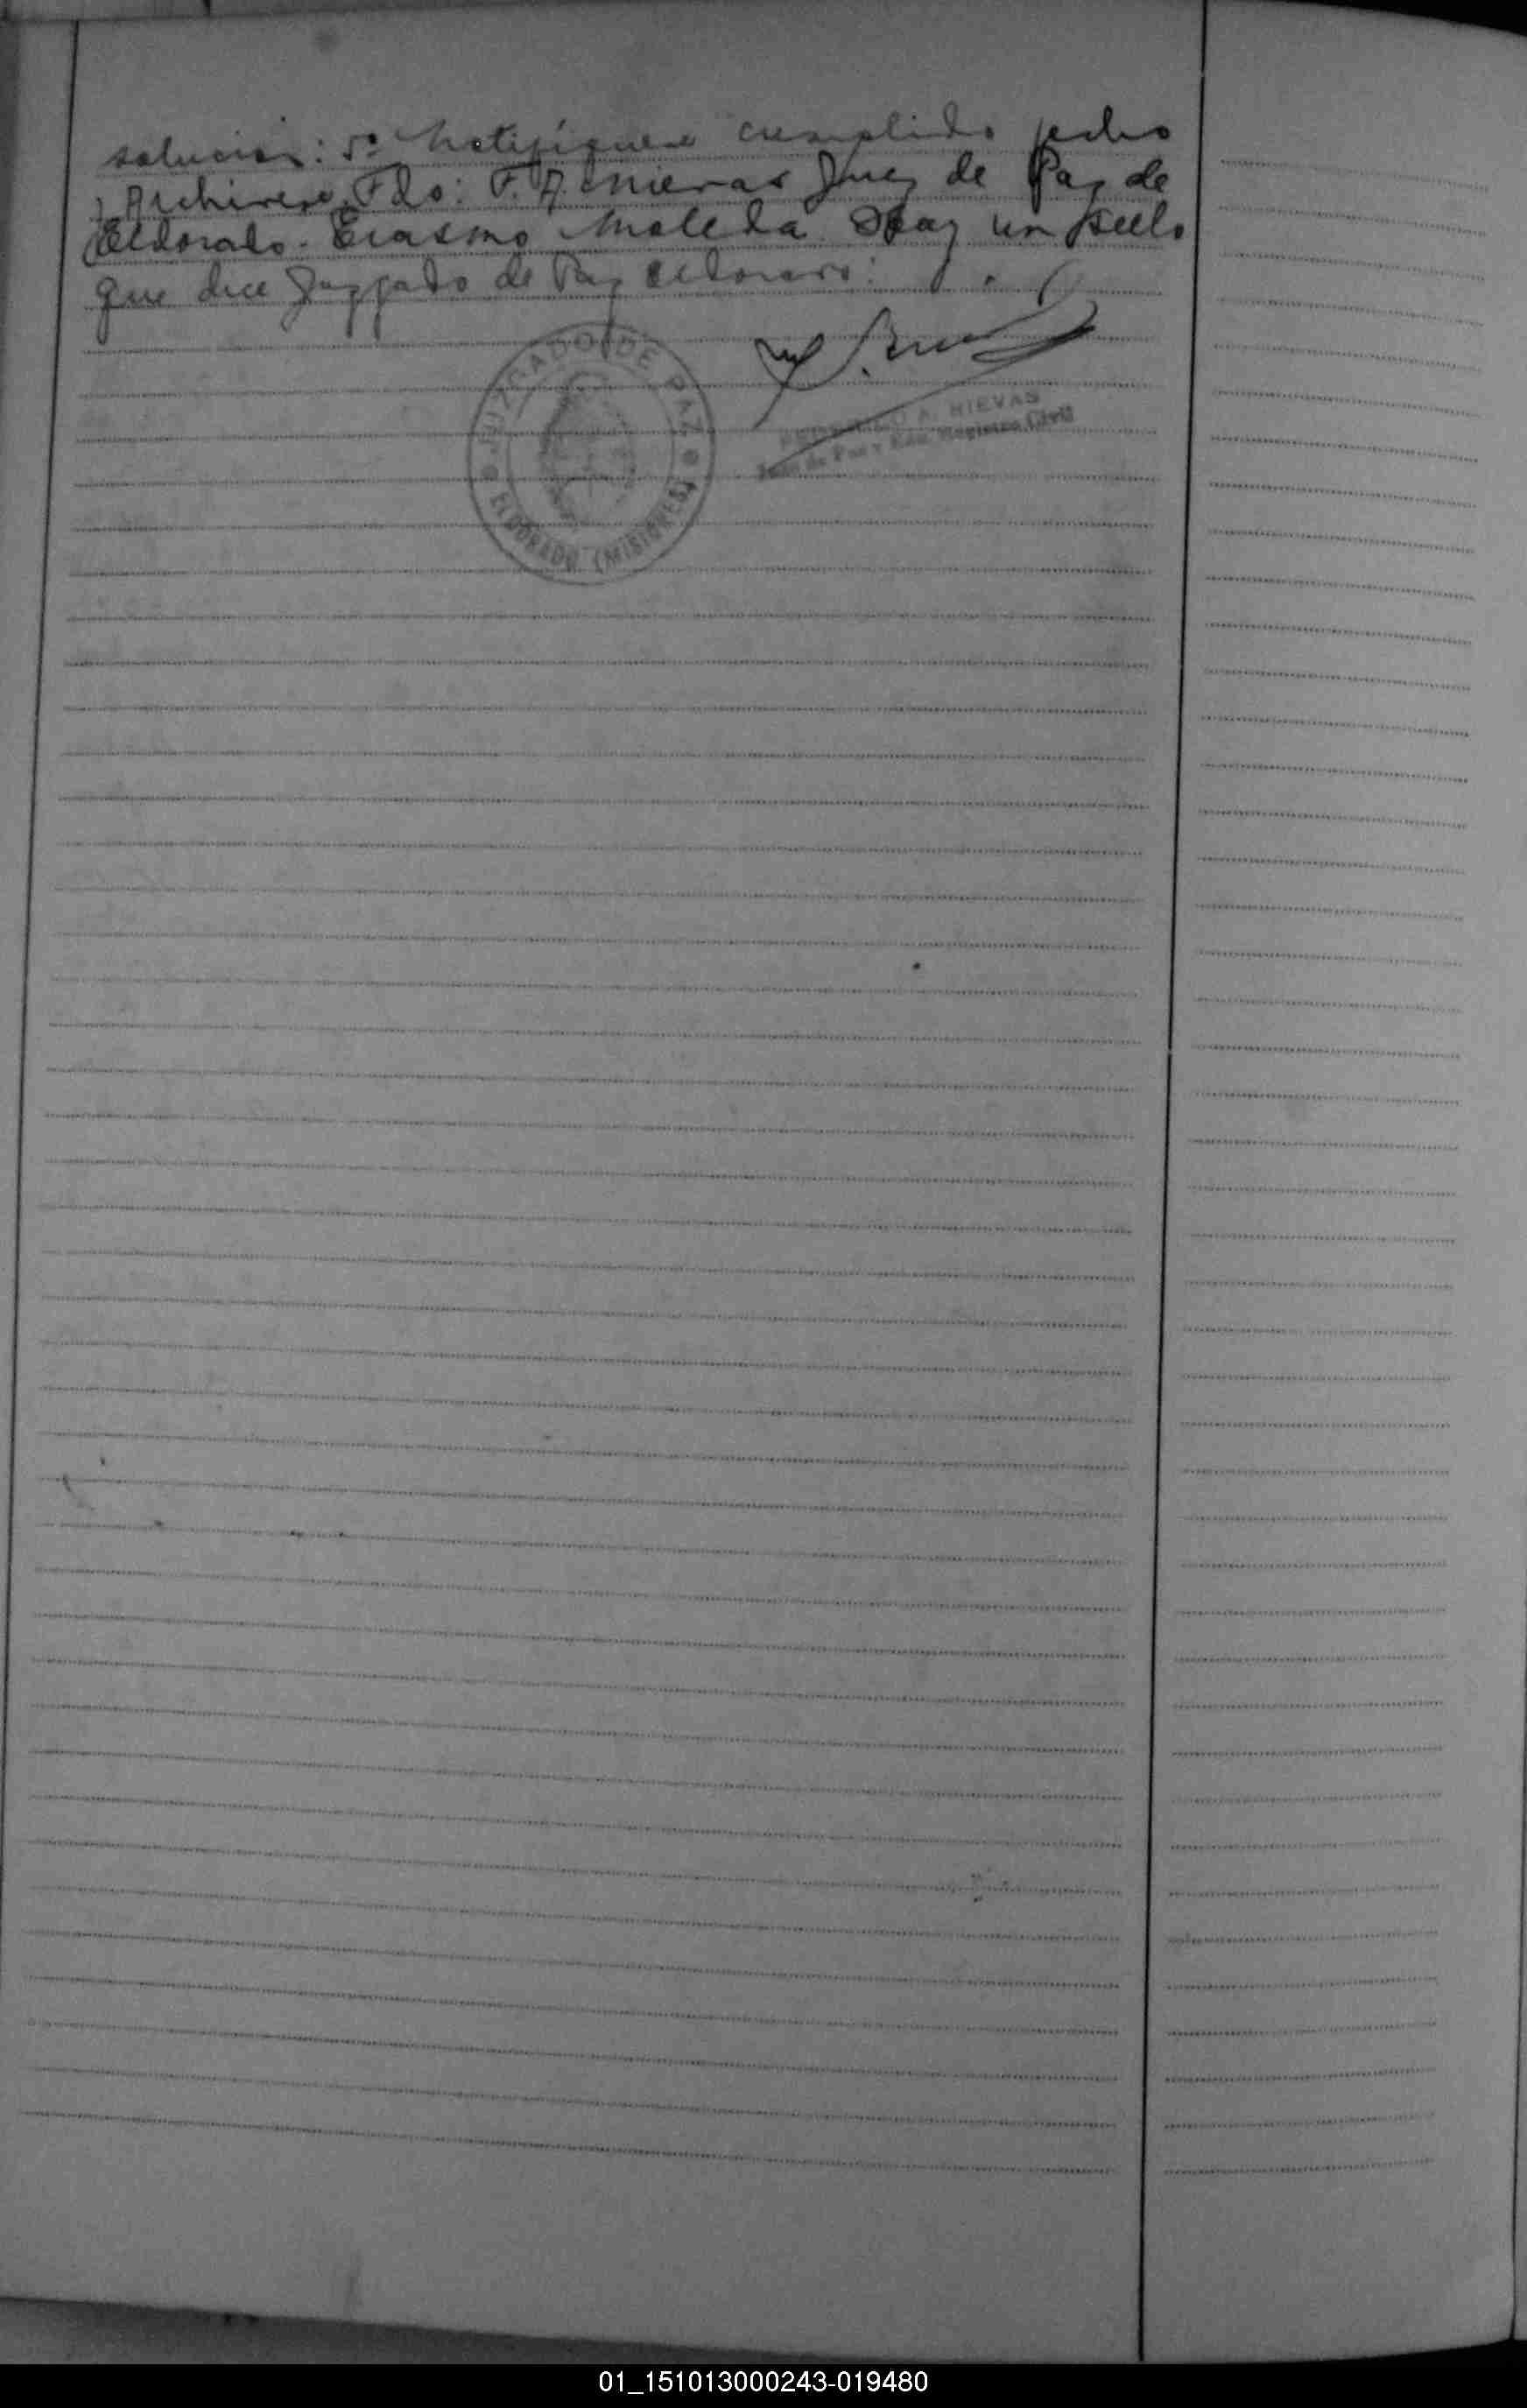 solucion: 5º Notifiquese cumplido fecho
y Archivese. Fdo: F. A. Nievas Juez de Paz de
Eldorado. Erasmo Maleda. Hay un sello
que dice Juzgado de Paz Eldorado:
JUZGADO DE PAZ
ELDORADO (MISIONES)
A. NIEVAS
Juez de Paz y Enc. Registro Civil
01_151013000243-019480